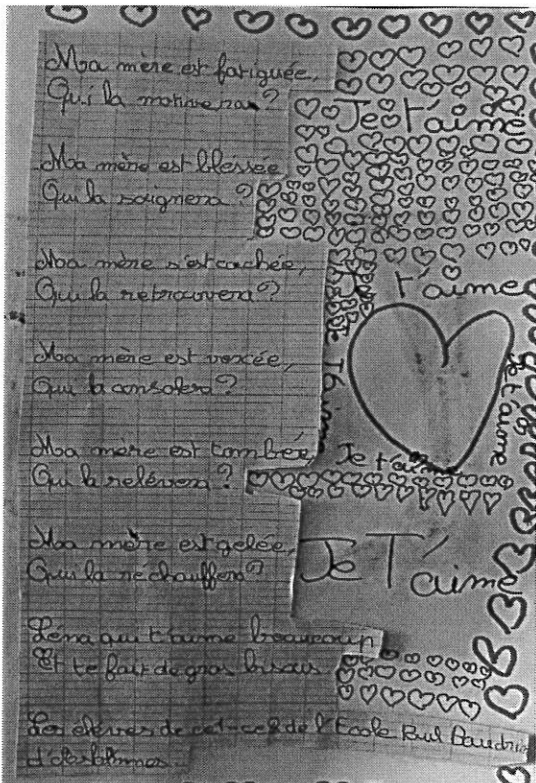 Ma mère est fatiguée,
Qui la motivera ?
Ma mère est blessée
Qui la soignera ?
Ma mère s'est cachée,
Qui la retrouvera ?
Ma mère est vexée,
Qui la consolera ?
Ma mère est tombée
Qui la relèvera ?
Ma mère est gelée,
Qui la réchauffera ?
Léna qui t'aime beaucoup
Et te fait de gros bisous
Les élèves de ce1-ce2 de l'Ecole Paul
Je t'aime
Je t'aime
Je t'aime
Je t'aime
Je t'aime
Je T'aime